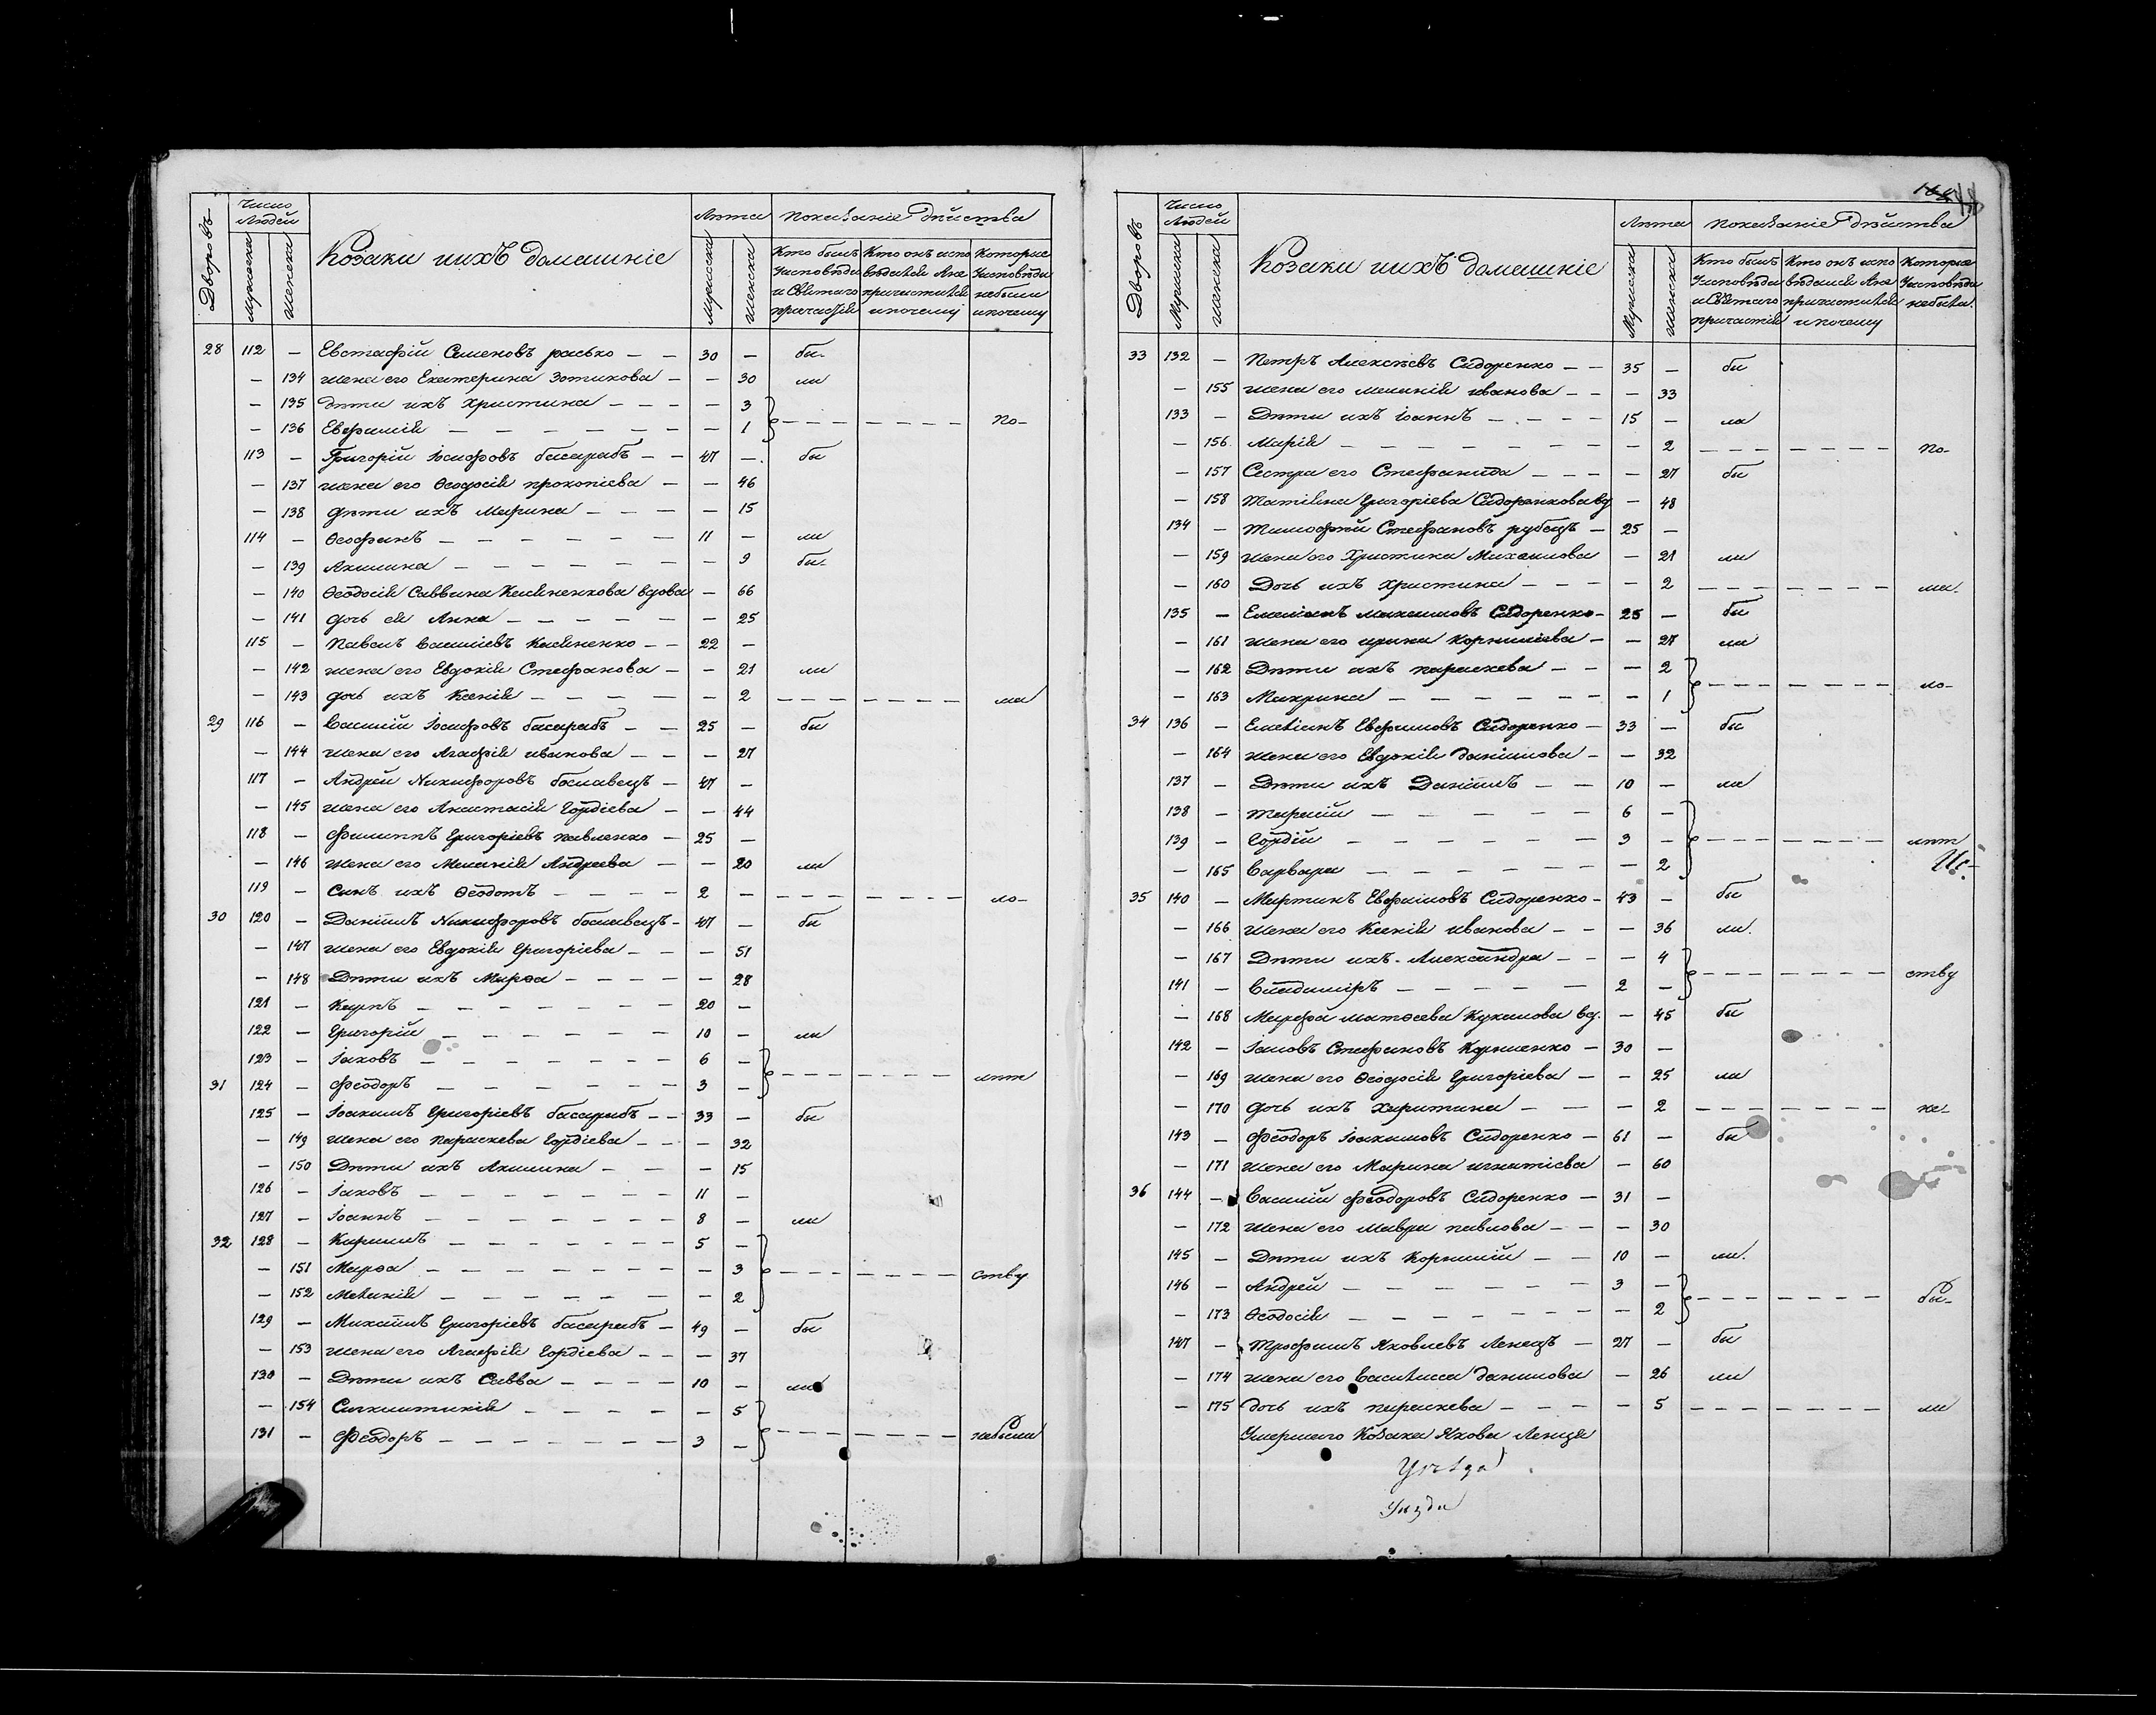 Дворовъ
Число Людей
Мужеска
Женска
Козаки ихъ домашніе
Лѣта
Мужеска
Женска
показаніе дѣйства
Кто былъ Уисповѣди и Святаго причастія
Кто онъ испо вѣдался Ане причистился и почему
Которые Уисповѣди небыли и почему
28 112 — Евстафій Семеновъ расько — — 30 — бы-
— 134 жена его Екатерина Зотикова — — 30 ли
— 135 дѣти ихъ Христина — — — — 3
— 136 Евфимія — — — — — — — 1 — — — — — — — по-
113 — Григорій Іосифовъ басарабъ — — 47 — бы
— 137 жена его Ѳеодосія прокопіева — — 46
— 138 дѣти ихъ Марина — — — — 15
114 — Ѳеофанъ — — — — — — 11 — ли
— 139 Акилина — — — — — — — 9 бы-
— 140 Ѳеодосія Саввина Касяненкова вдова — 66
— 141 дочь ея Анна — — — — — — 25
115 — Павелъ Василіевъ Касяненко — — 22 —
— 142 жена его Евдокія Стефанова — — 21 ли
— 143 дочь ихъ Ксенія — — — — — 2 — — — — — — — ма
29 116 — Василій Іосифовъ басарабъ — — 25 — бы
— 144 жена его Агафія иванова — — — 27
117 — Андрей Никифоровъ богславецъ — 47 —
— 145 жена его Анастасія Гордіева — — 44
118 — Филиппъ Григоріевъ Павленко — 25 —
— 146 жена его Меланія Андреева — — 20 ли
119 — Сынъ ихъ Ѳеодотъ — — — — 2 — — — — — — — — ло-
30 120 — Даніилъ Никифоровъ богславецъ — 47 — бы
— 147 жена его Евдокія Григоріева — — — 51
— 148 Дѣти ихъ Марѳа — — — — — 28
121 — Карпъ — — — — — — — 20 —
122 — Григорій — — — — — — 10 — ли
123 — Іаковъ — — — — — — — 6 —
31 124 — Феодоръ — — — — — — 3 — — — — — — — — лѣт
125 — Іоакимъ Григоріевъ басарабъ — — 33 — бы
— 149 жена его параскева Гордіева — — — 32
— 150 Дѣти ихъ Акилина — — — 15
126 — Іаковъ — — — — — — — 11 —
127 — Іоаннъ — — — — — — — 8 — ли
32 128 — Кирилъ — — — — — — — 5 —
— 151 Марѳа — — — — — — — — 3 — — — — — — — ству
— 152 Меланія — — — — — — — 2
129 — Михаилъ Григоріевъ басарабъ — 49 — бы
— 153 жена его Агафія Гордіева — — — 37
130 — Дѣти ихъ Савва — — — — 10 — ли
— 154 Синклитикія — — — — — 5
131 — Феодоръ — — — — — — — 3 — — — — — — — — небыли
Дворовъ
Число Людей
Мужеска
Женска
Козаки ихъ домашніе
Лѣта
Мужеска
Женска
показаніе дѣйства
Кто былъ Уисповѣди и Святаго причастія
Кто онъ испо вѣдался Ане причистился и почему
Которые Уисповѣди небыли.
33 132 — Петръ Алексѣевъ Сидоренко — — 35 — бы
— 155 жена его меланія иванова — — — 33
133 — Дѣти ихъ іоаннъ — — — — 15 — ли
— 156. Марія — — — — — — — — 2 — — — — — — — по-
— 157 Сестра его Стефанида — — — — 27 бы
— 158 Татіана Григоріева Сидоренкова вд — 48
134 — Тимофѣй Стефановъ рубецъ — 25 —
— 159 жена его Христина Михаилова — 21 ли
— 160 Дочь ихъ Христина — — — — 2 — — — — — — — ма.
135 — Емеліанъ максимовъ Сидоренко — 25 — бы
— 161 жена его ирина Корниліева — — 27 ли
— 162 Дѣти ихъ параскева — — — 2
— 163 Макрина — — — — — — — 1 — — — — — — — ло-
34 136 — Емеліанъ Евфимовъ Сидоренко — 33 — бы
— 164 жена его Евдокія даніилова — — 32
137 — Дѣти ихъ Даніилъ — — 10 — ли
138 — Тарасій — — — — — 6 —
139 — Гордій — — — — — — 3 — — — — — — — — лѣт
— 165 Варвара — — — — — — — 2
35 140 — Мартинъ Евфимовъ Сидоренко — 43 — бы
— 166 жена его Ксенія иванова — — — 36 ли.
— 167 Дѣти ихъ Александра — — — 4
141 — Владиміръ — — — — — 2 — — — — — — — — ству
— 168 Марфа матѳеева Кукалова вд. — 45 бы
142 — Іаковъ Стефановъ Корниенко — 30 —
— 169 жена его Ѳеодосія Григоріева — — 25 ли
— 170 дочь ихъ харитина — — — 2 — — — — — — — не-
143 — Феодоръ Іоакимовъ Сидоренко — 61 — бы
— 171 жена его Марина игнатіева — 60
36 144 — Василій Феодоровъ Сидоренко — 31 —
— 172 жена его мавра павлова — — — 30
145 — Дѣти ихъ Корнилій — — 10 — ли.
146 — Андрей — — — — — — 3 —
— 173 Ѳеодосія — — — — — — — 2 — — — — — — — бы-
147 — Трофимъ Яковлевъ Ленецъ — 27 — бы
— 174 жена его Василисса данилова — 26 ли
— 175 дочь ихъ параскева — — — — 5 — — — — — — — ли
Умершаго Козака Якова Ленця